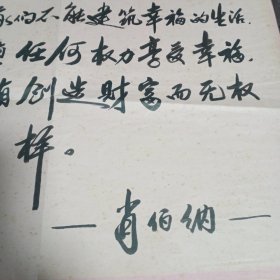 我们不能建筑幸福的生活,
任何权力享受幸福,
有创造财富而无权
样。
—肖伯纳—